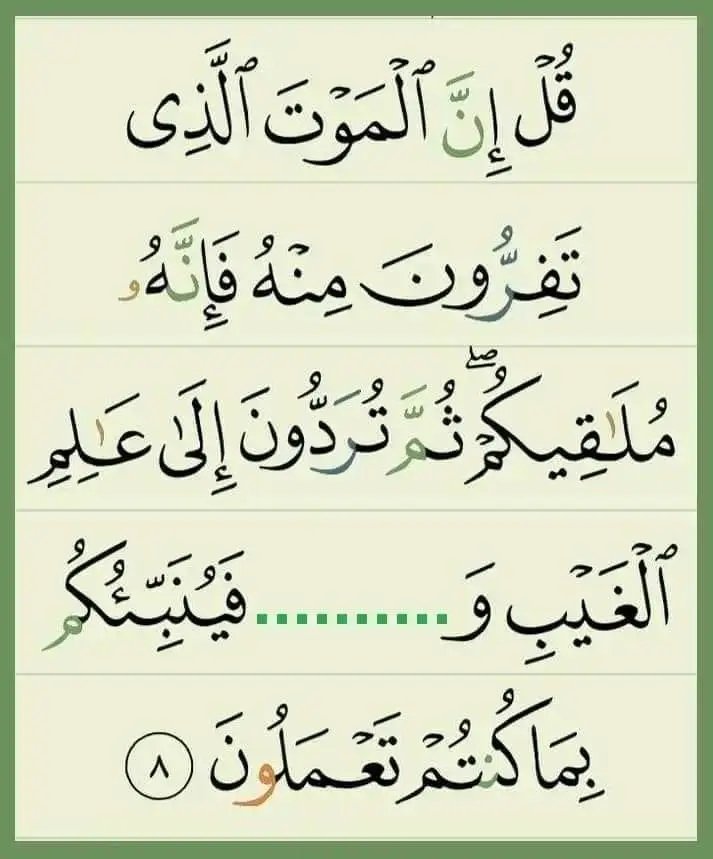 قُلْ إِنَّ ٱلْمَوْتَ ٱلَّذِى
تَفِرُّونَ مِنْهُ فَإِنَّهُۥ
مُلَٰقِيكُمْ ۖ ثُمَّ تُرَدُّونَ إِلَىٰ عَٰلِمِ
ٱلْغَيْبِ وَ.......... فَيُنَبِّئُكُم
بِمَا كُنتُمْ تَعْمَلُونَ ٨